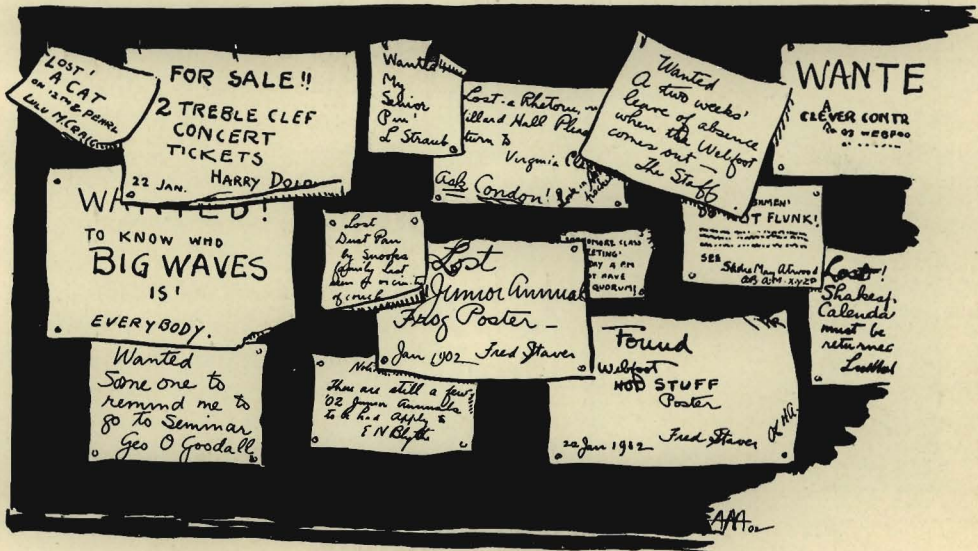 LOST!
A CAT
ON 12TH & PEARL
LULU M. CRAIG
FOR SALE!!
2 TREBLE CLEF
CONCERT
TICKETS
HARRY
22 JAN.
Wanted
My
Senior
Pin!
L Straub
Lost - a Rhetoric,
Villard Hall Please
return to
Virginia
Ask Condon!
Wanted
A two weeks'
leave of absence
when the Webfoot
comes out —
The Staff
WANTE
A
CLEVER CONTR
WANTED!
TO KNOW WHO
BIG WAVES
IS!
EVERYBODY.
Lost
Dust Pan
by Snoops
family last
seen
of couch
Lost
Junior Annual
Frog Poster —
Jan 1902 Fred Staver
OMORE CLASS
EETING!
DAY 4 PM
OT HAVE
QUORUM!
SHMEN!
DO NOT FLUNK!
SEE
Sadie May Atwood
A.B. A.M. X.Y.Z.P
Lost!
Shakesp.
Calenda
must be
returned
Wanted
Some one to
remind me to
go to Seminar
Geo O Goodall
There are still a few
'02 Junior Annuals
to be had Apply to
E N Blythe
Found
Webfoot
HOT STUFF
Poster
22 Jan 1902 Fred Staver
02